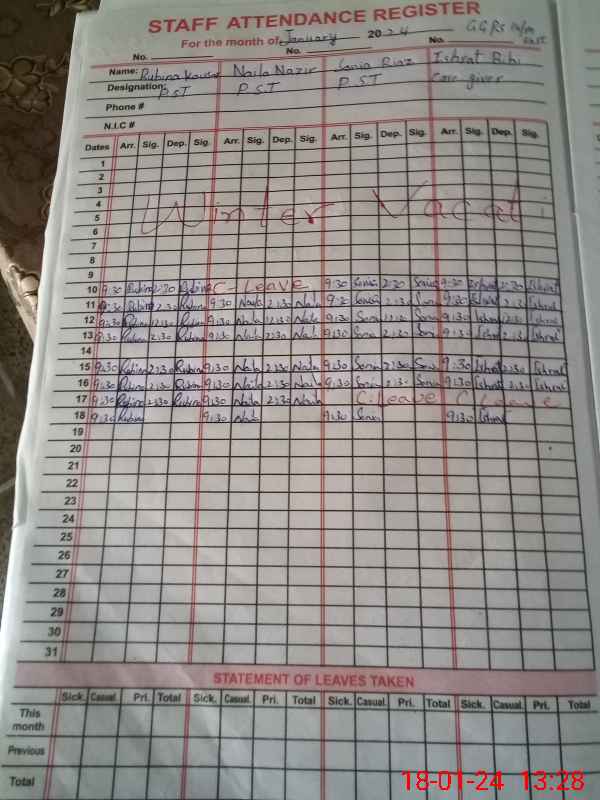 STAFF ATTENDANCE REGISTER
For the month of January 2024 GGPS
No. No. No.
Name: Rubina Kousar Naila Nazir Sonia Riaz Ishrat Bibi
Designation: P.ST P.S.T P.S.T Care giver
Phone #
N.I.C #
Dates Arr. Sig. Dep. Sig. Arr. Sig. Dep. Sig. Arr. Sig. Dep. Sig. Arr. Sig. Dep. Sig.
1
2
3
4
5
Winter Vacati
6
7
8
9
10 9:30 Rubina 2:30 Rubina C-Leave 9:30 Sonia 2:30 Sonia 9:30 Ishrat 2:30 Ishrat
11 9:30 Rubina 2:30 Rubina 9:30 Naila 2:30 Naila 9:30 Sonia 2:30 Sonia 9:30 Ishrat 2:30 Ishrat
12 9:30 Rubina 12:30 Rubina 9:30 Naila 12:30 Naila 9:30 Sonia 12:30 Sonia 9:30 Ishrat 12:30 Ishrat
13 9:30 Rubina 2:30 Rubina 9:30 Naila 2:30 Naila 9:30 Sonia 2:30 Sonia 9:30 Ishrat 2:30 Ishrat
14
15 9:30 Rubina 2:30 Rubina 9:30 Naila 2:30 Naila 9:30 Sonia 2:30 Sonia 9:30 Ishrat 2:30 Ishrat
16 9:30 Rubina 2:30 Rubina 9:30 Naila 2:30 Naila 9:30 Sonia 2:30 Sonia 9:30 Ishrat 2:30 Ishrat
17 9:30 Rubina 2:30 Rubina 9:30 Naila 2:30 Naila C.Leave C Leave
18 9:30 Rubina 9:30 Naila 9:30 Sonia 9:30 Ishrat
19
20
21
22
23
24
25
26
27
28
29
30
31
STATEMENT OF LEAVES TAKEN
Sick. Casual. Pri. Total Sick. Casual. Pri. Total Sick. Casual. Pri. Total Sick. Casual. Pri. Total
This month
Previous
Total
18-01-24 13:28